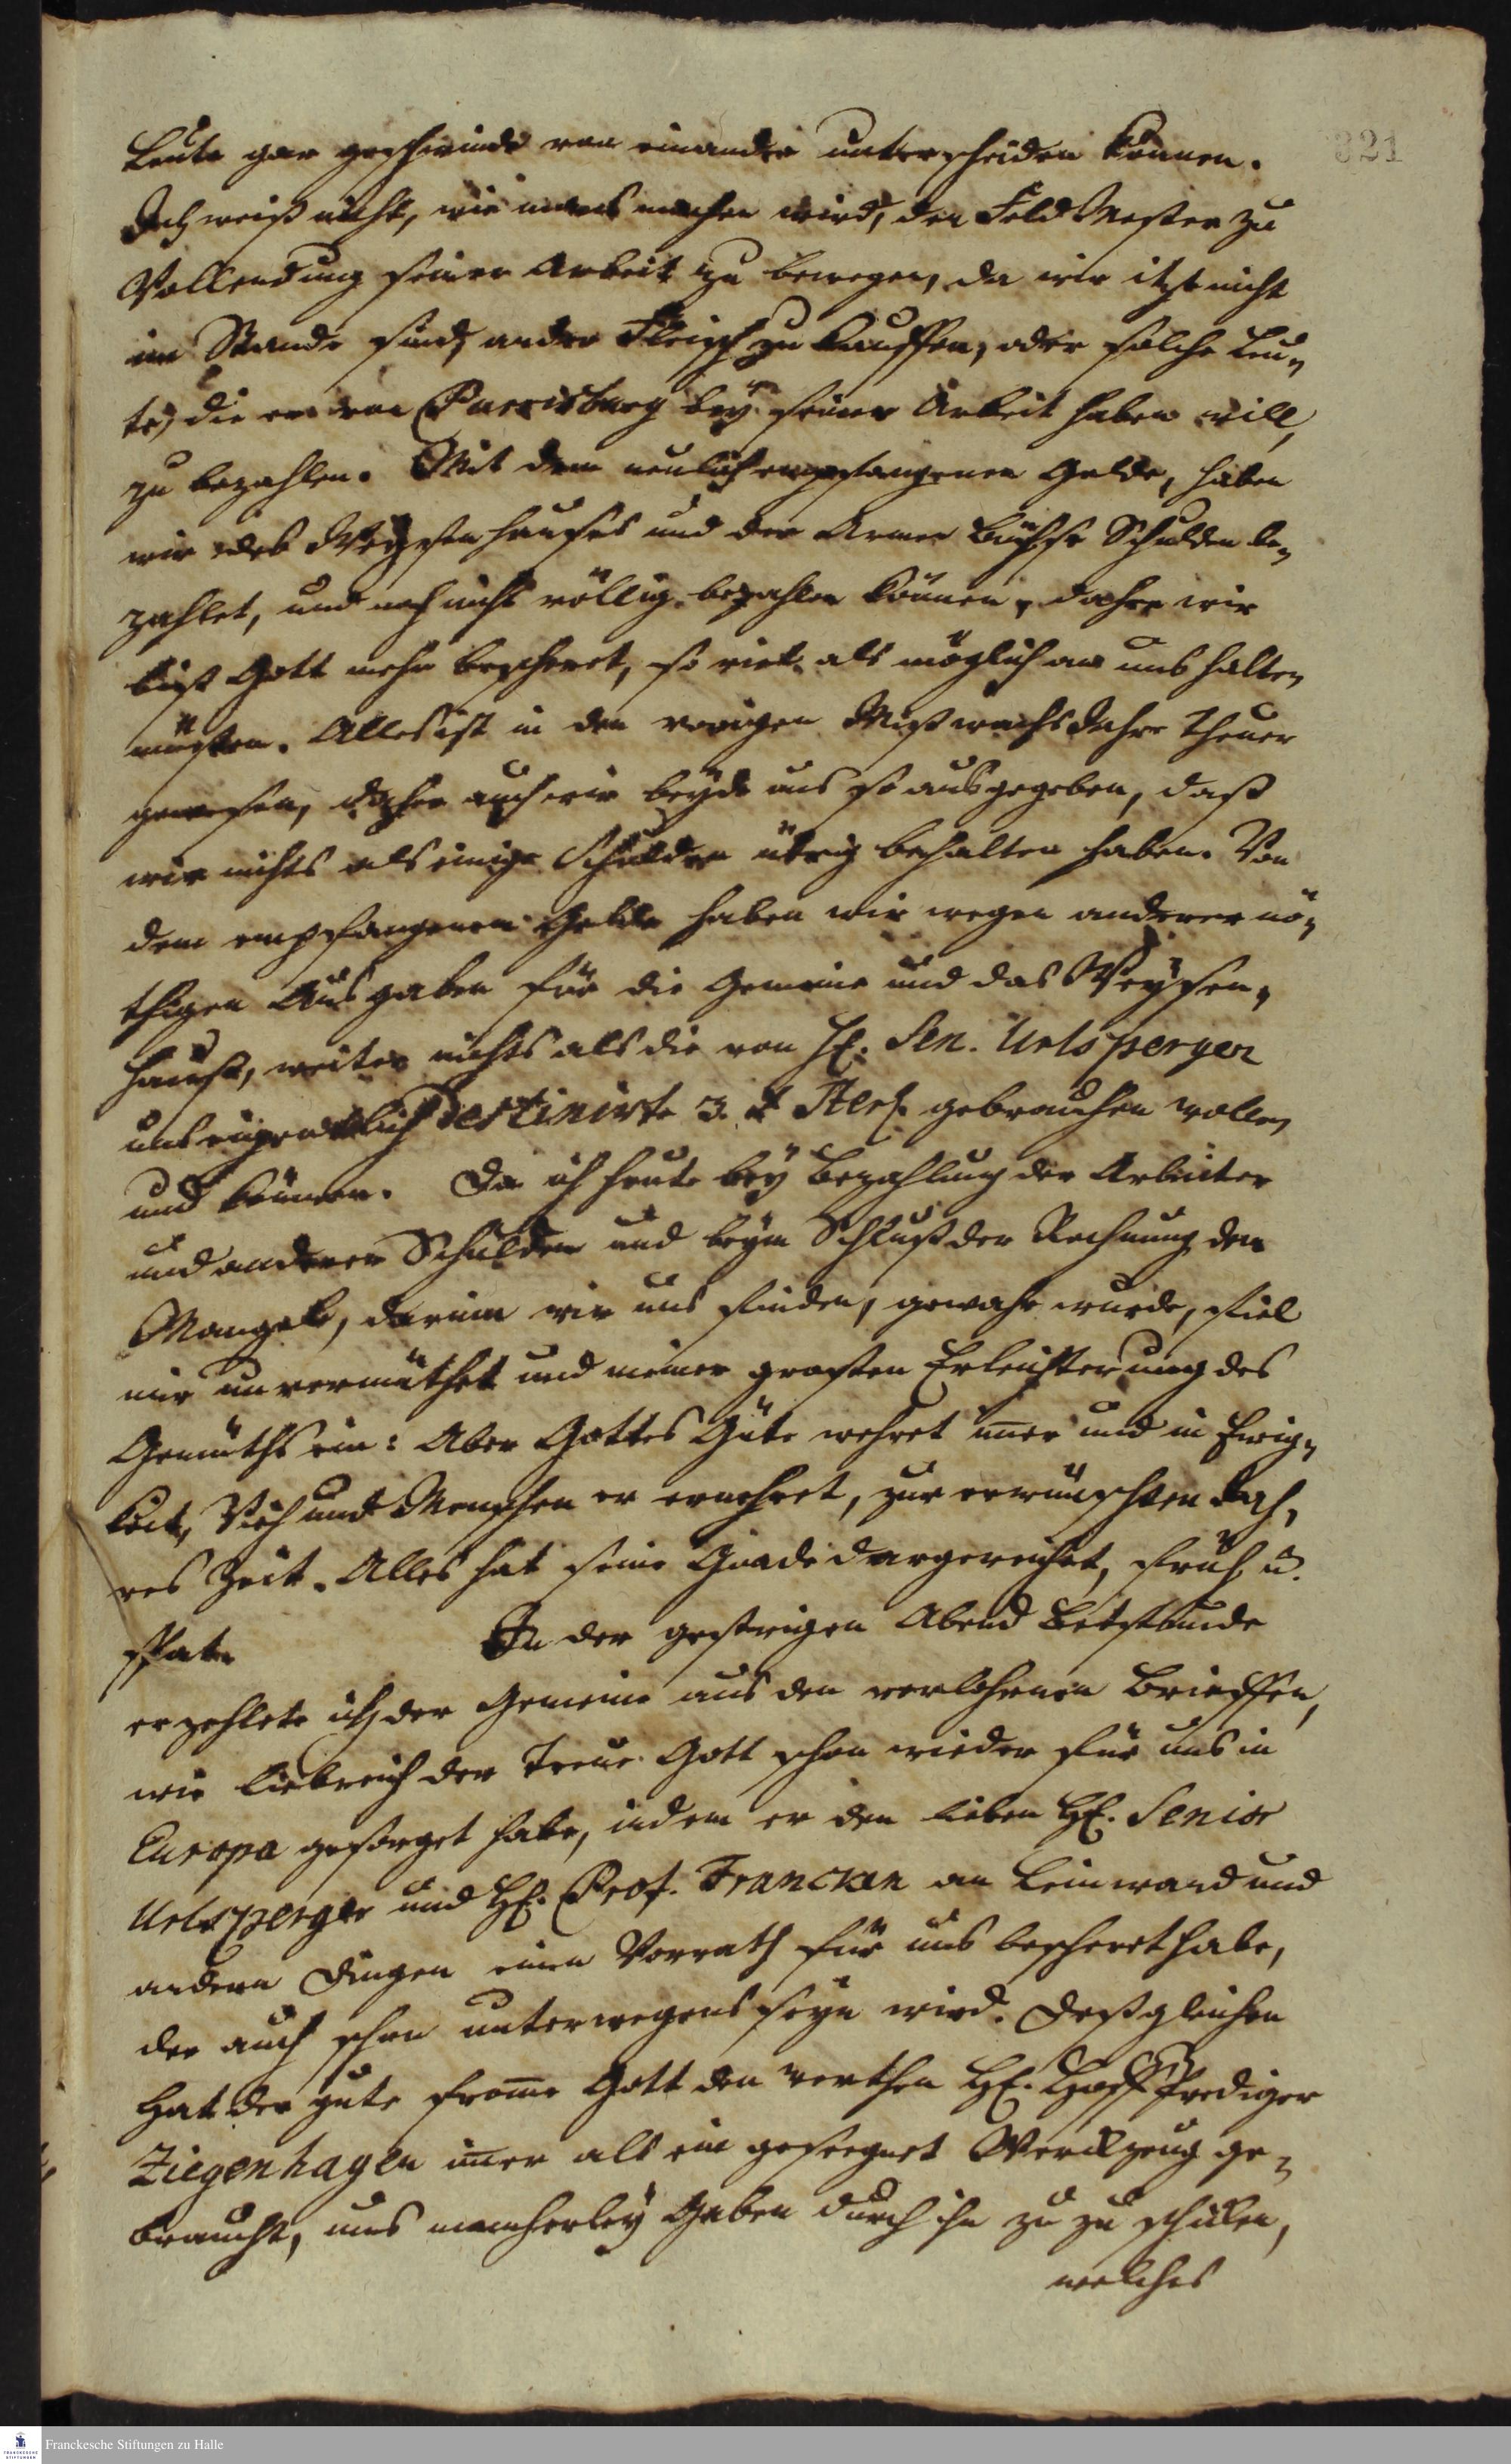 821
Leute gar geschwinde von einander unterscheiden können.
Ich weiß nicht, wie mans machen wird, den Feld Messer zu
Vollendung seiner Arbeit zu bewegen, da wir itzt nicht
im Stande sind, ander Fleisch zu kauffen, oder solche Leu-
te, die er von Purrisburg bey seiner Arbeit haben will,
zu bezahlen. Mit dem neulich empfangenen Gelde, haben
wir des Weysenhauses und der Armen Büchse Schulden be-
zahlet, und noch nicht völlig bezahlen können, daher wir
bist Gott mehr bescheret, so viel als möglich an uns halten
müssen. Alles ist in den vorigen Mißwachs Jahr theuer
gewesen, daher auch wir beyde uns so ausgegeben, daß
wir nichts als einige Schulden übrig behalten haben. Von
dem empfangenen Gelde haben wir wegen anderer nö-
thigen Ausgaben für die Gemeine und das Weysen-
hauß, weiter nichts als die von H. Sen. Urlsperger
uns eigentlich destinirte 3. £ Sterl. gebrauchen wollen
und können. Da ich heute bey Bezahlung der Arbeiter
und anderer Schulden und beym Schluß der Rechnung den
Mangel, darinn wir uns finden, gewahr wurde, fiel
mir unvermuthet und meiner grosten Erleichterung des
Gemüths ein: Aber Gottes Güte wehret imer und in Ewig-
keit, Vieh und Menschen er ernehret, zur erwünschten Jah-
res Zeit. Alles hat seine Gnade dargereichet, früh u.
spate In der gestrigen Abend Betstunde
erzehlete ich der Gemeine aus den verlohrnen Brieffen,
wie liebreich der treue Gott schon wieder für uns in
Europa gesorget habe, indem er den lieben HE. Senior
Urlsperger und HE. Prof. Francken an Leinwand und
andern Dingen einen Vorrath für uns bescheret habe,
der auch schon unterwegens seyn wird. Deßgleichen
hat der gute fromme Gott den werthen HE. Hoff Prediger
Ziegenhagen imer als ein gesegnet Werckzeug ge-
braucht, uns mancherley Gaben durch ihn zu zu schicken,
welches
Franckesche Stiftungen zu Halle